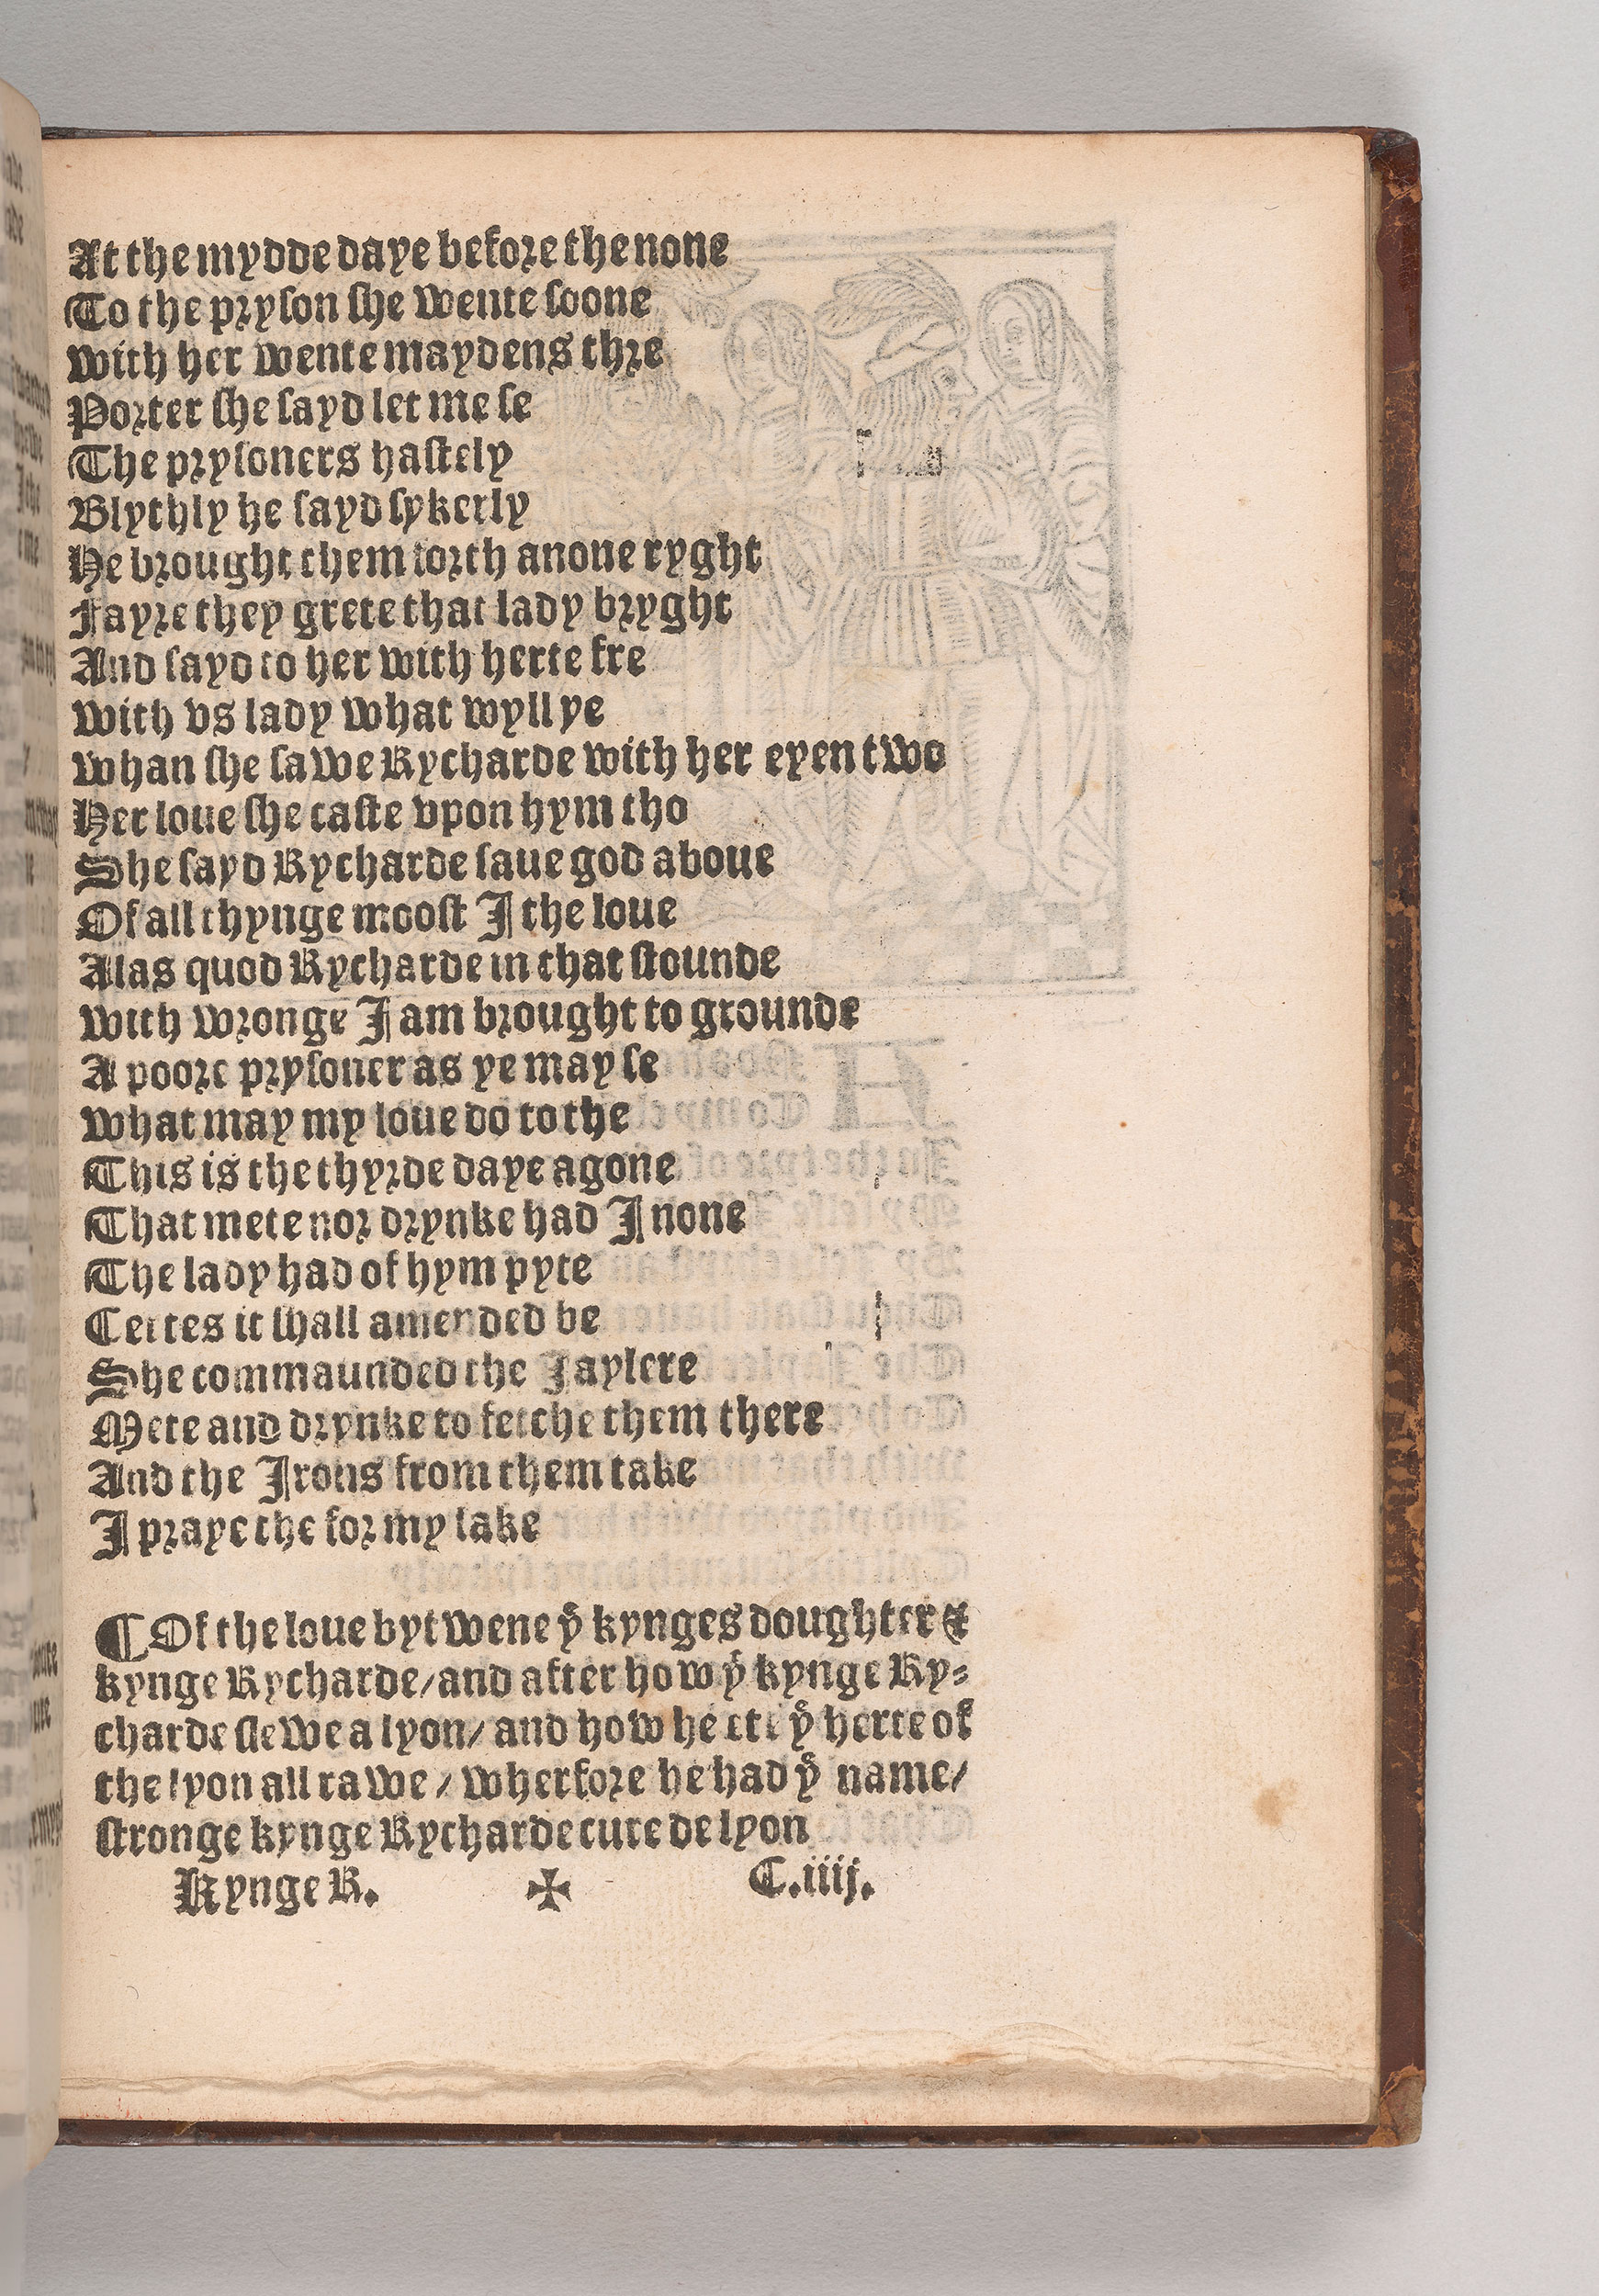 At the mydde daye before the none
To the pryson she wente soone
With her wente maydens thre
Porter she sayd let me se
The prysoners hastely
Blythly he sayd sykerly
He brought them forth anone ryght
Fayre they grete that lady bryght
And sayd to her with herte fre
With vs lady what wyll ye
Whan she sawe Rycharde with her eyen two
Her loue she caste vpon hym tho
She sayd Rycharde saue god aboue
Of all thynge moost I the loue
Alas quod Rycharde in that stounde
With wronge I am brought to grounde
A poore prysoner as ye may se
What may my loue do to the
This is the thyrde daye agone
That mete nor drynke had I none
The lady had of hym pyte
Certes it shall amended be
She commaunded the Jaylere
Mete and drynke to fetche them there
And the Irons from them take
I praye the for my sake
¶ Of the loue bytwene yͤ kynges doughter &
kynge Rycharde/and after how yͤ kynge Ry=
charde slewe a lyon/ and how he ete yͤ herte of
the lyon all rawe / wherfore he had yͤ name/
stronge kynge Rycharde cure de lyon
Kynge R. ✠ C.iiij.